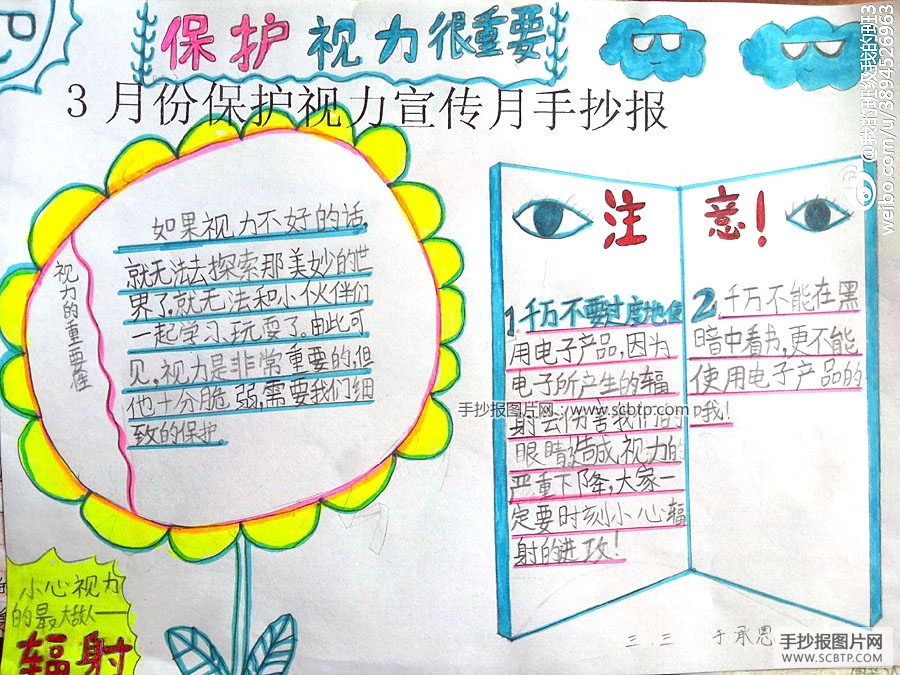 保护视力很重要
3月份保护视力宣传月手抄报
@我的班级我的班3
weibo.com/u/3894526963
视力的重要性
如果视力不好的话,
就无法去探索那美妙的世
界了,就无法和小伙伴们
一起学习,玩耍了。由此可
见,视力是非常重要的,但
他十分脆弱,需要我们细
致的保护。
注意!
1.千万不要过度地使
用电子产品,因为
电子所产生的辐
射会伤害我们的
眼睛,造成视力的
严重下降,大家一
定要时刻小心辐
射的进攻!
2 千万不能在黑
暗中看书,更不能
使用电子产品的
哦!
手抄报图片网 www.scbtp.com
小心视力
的最大敌人——
辐射
三.三 于承恩
手抄报图片网
WWW.SCBTP.COM